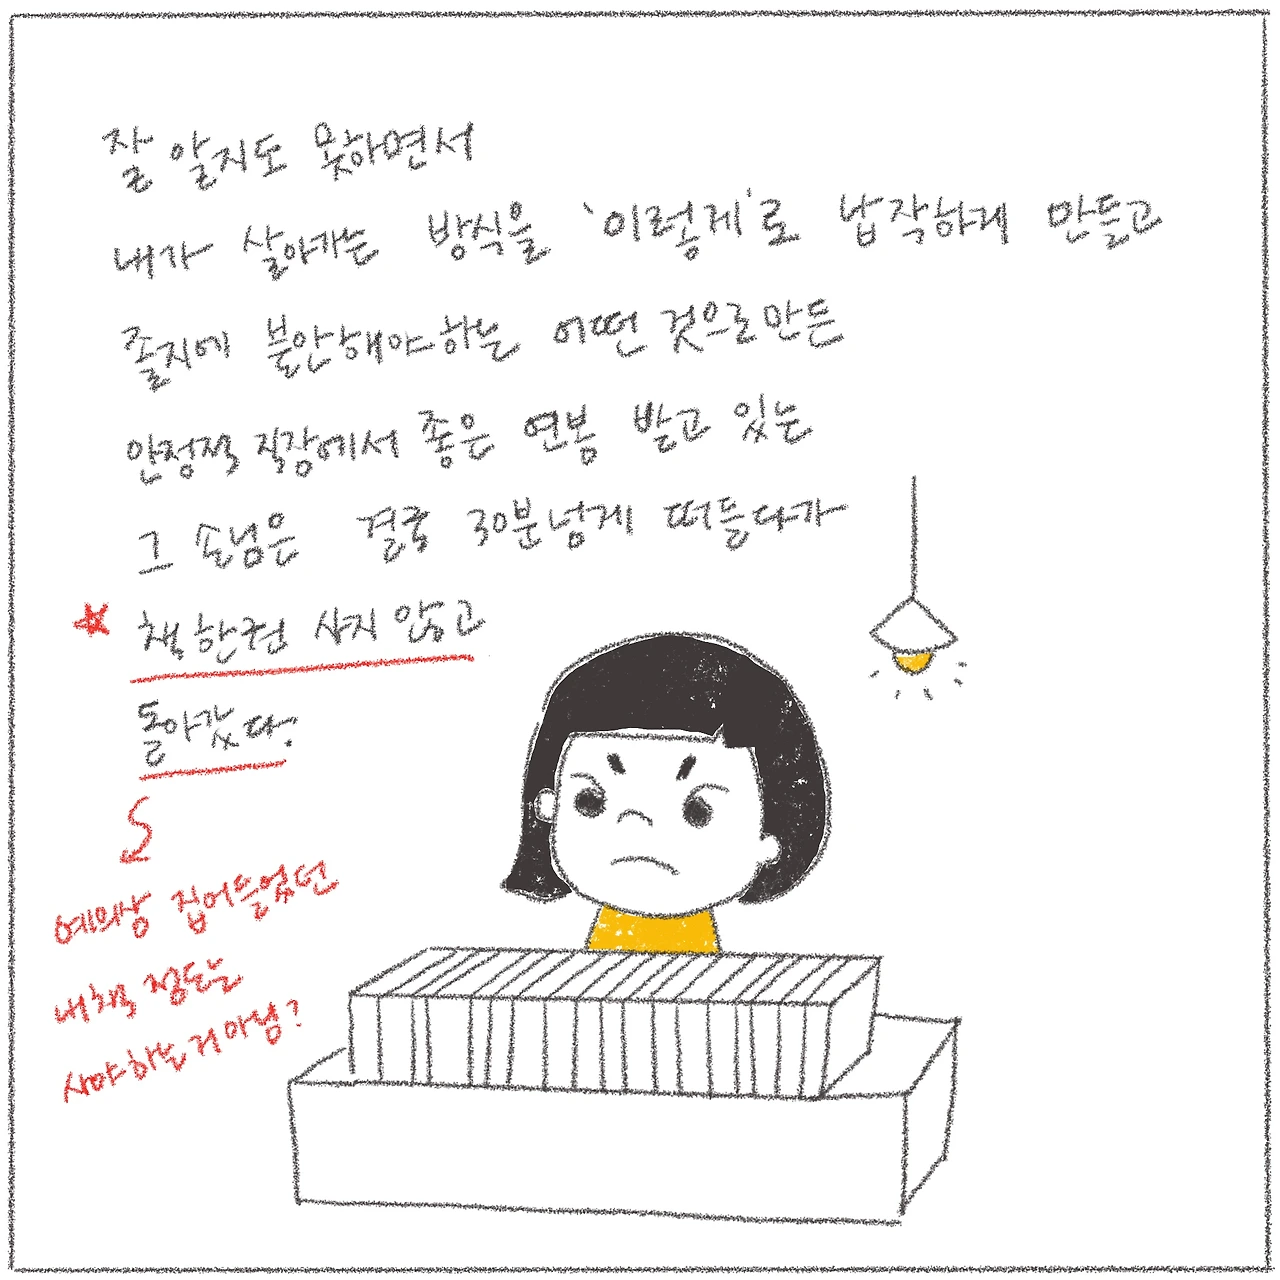 잘 알지도 못하면서
내가 살아가는 방식을 '이렇게'로 납작하게 만들고
졸지에 불안해야하는 어떤 것으로 만든
안정적 직장에서 좋은 연봉 받고 있는
그 손님은 결국 30분넘게 떠들다가
책 한권 사지 않고
돌아갔다.
예의상 집어들었던
내책 정도는
사야하는거 아님?